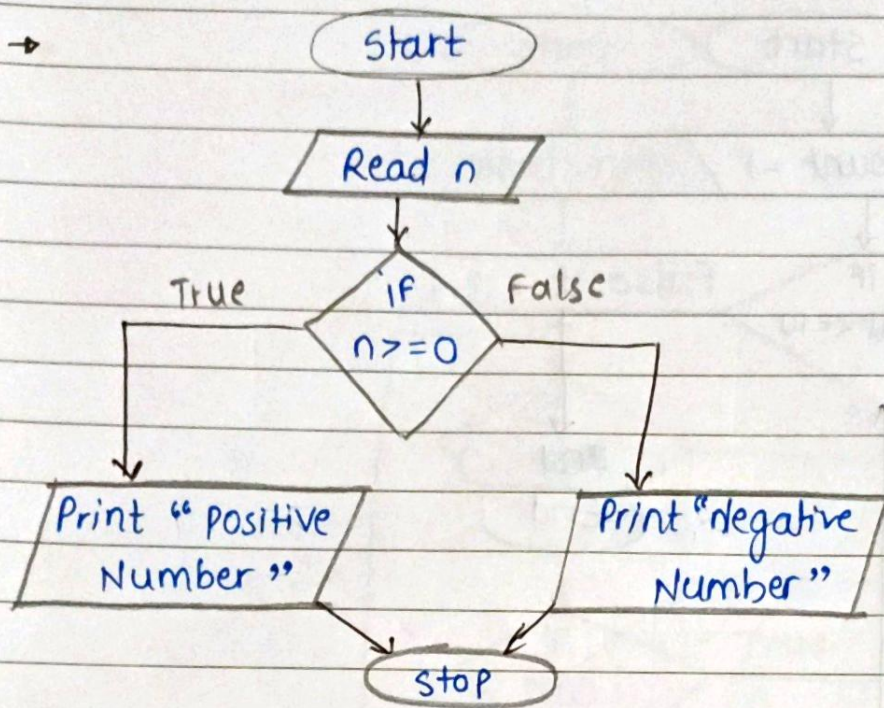 Start
Read n
True
if
False
n>=0
Print “ Positive
Number ”
Print “Negative
Number”
stop